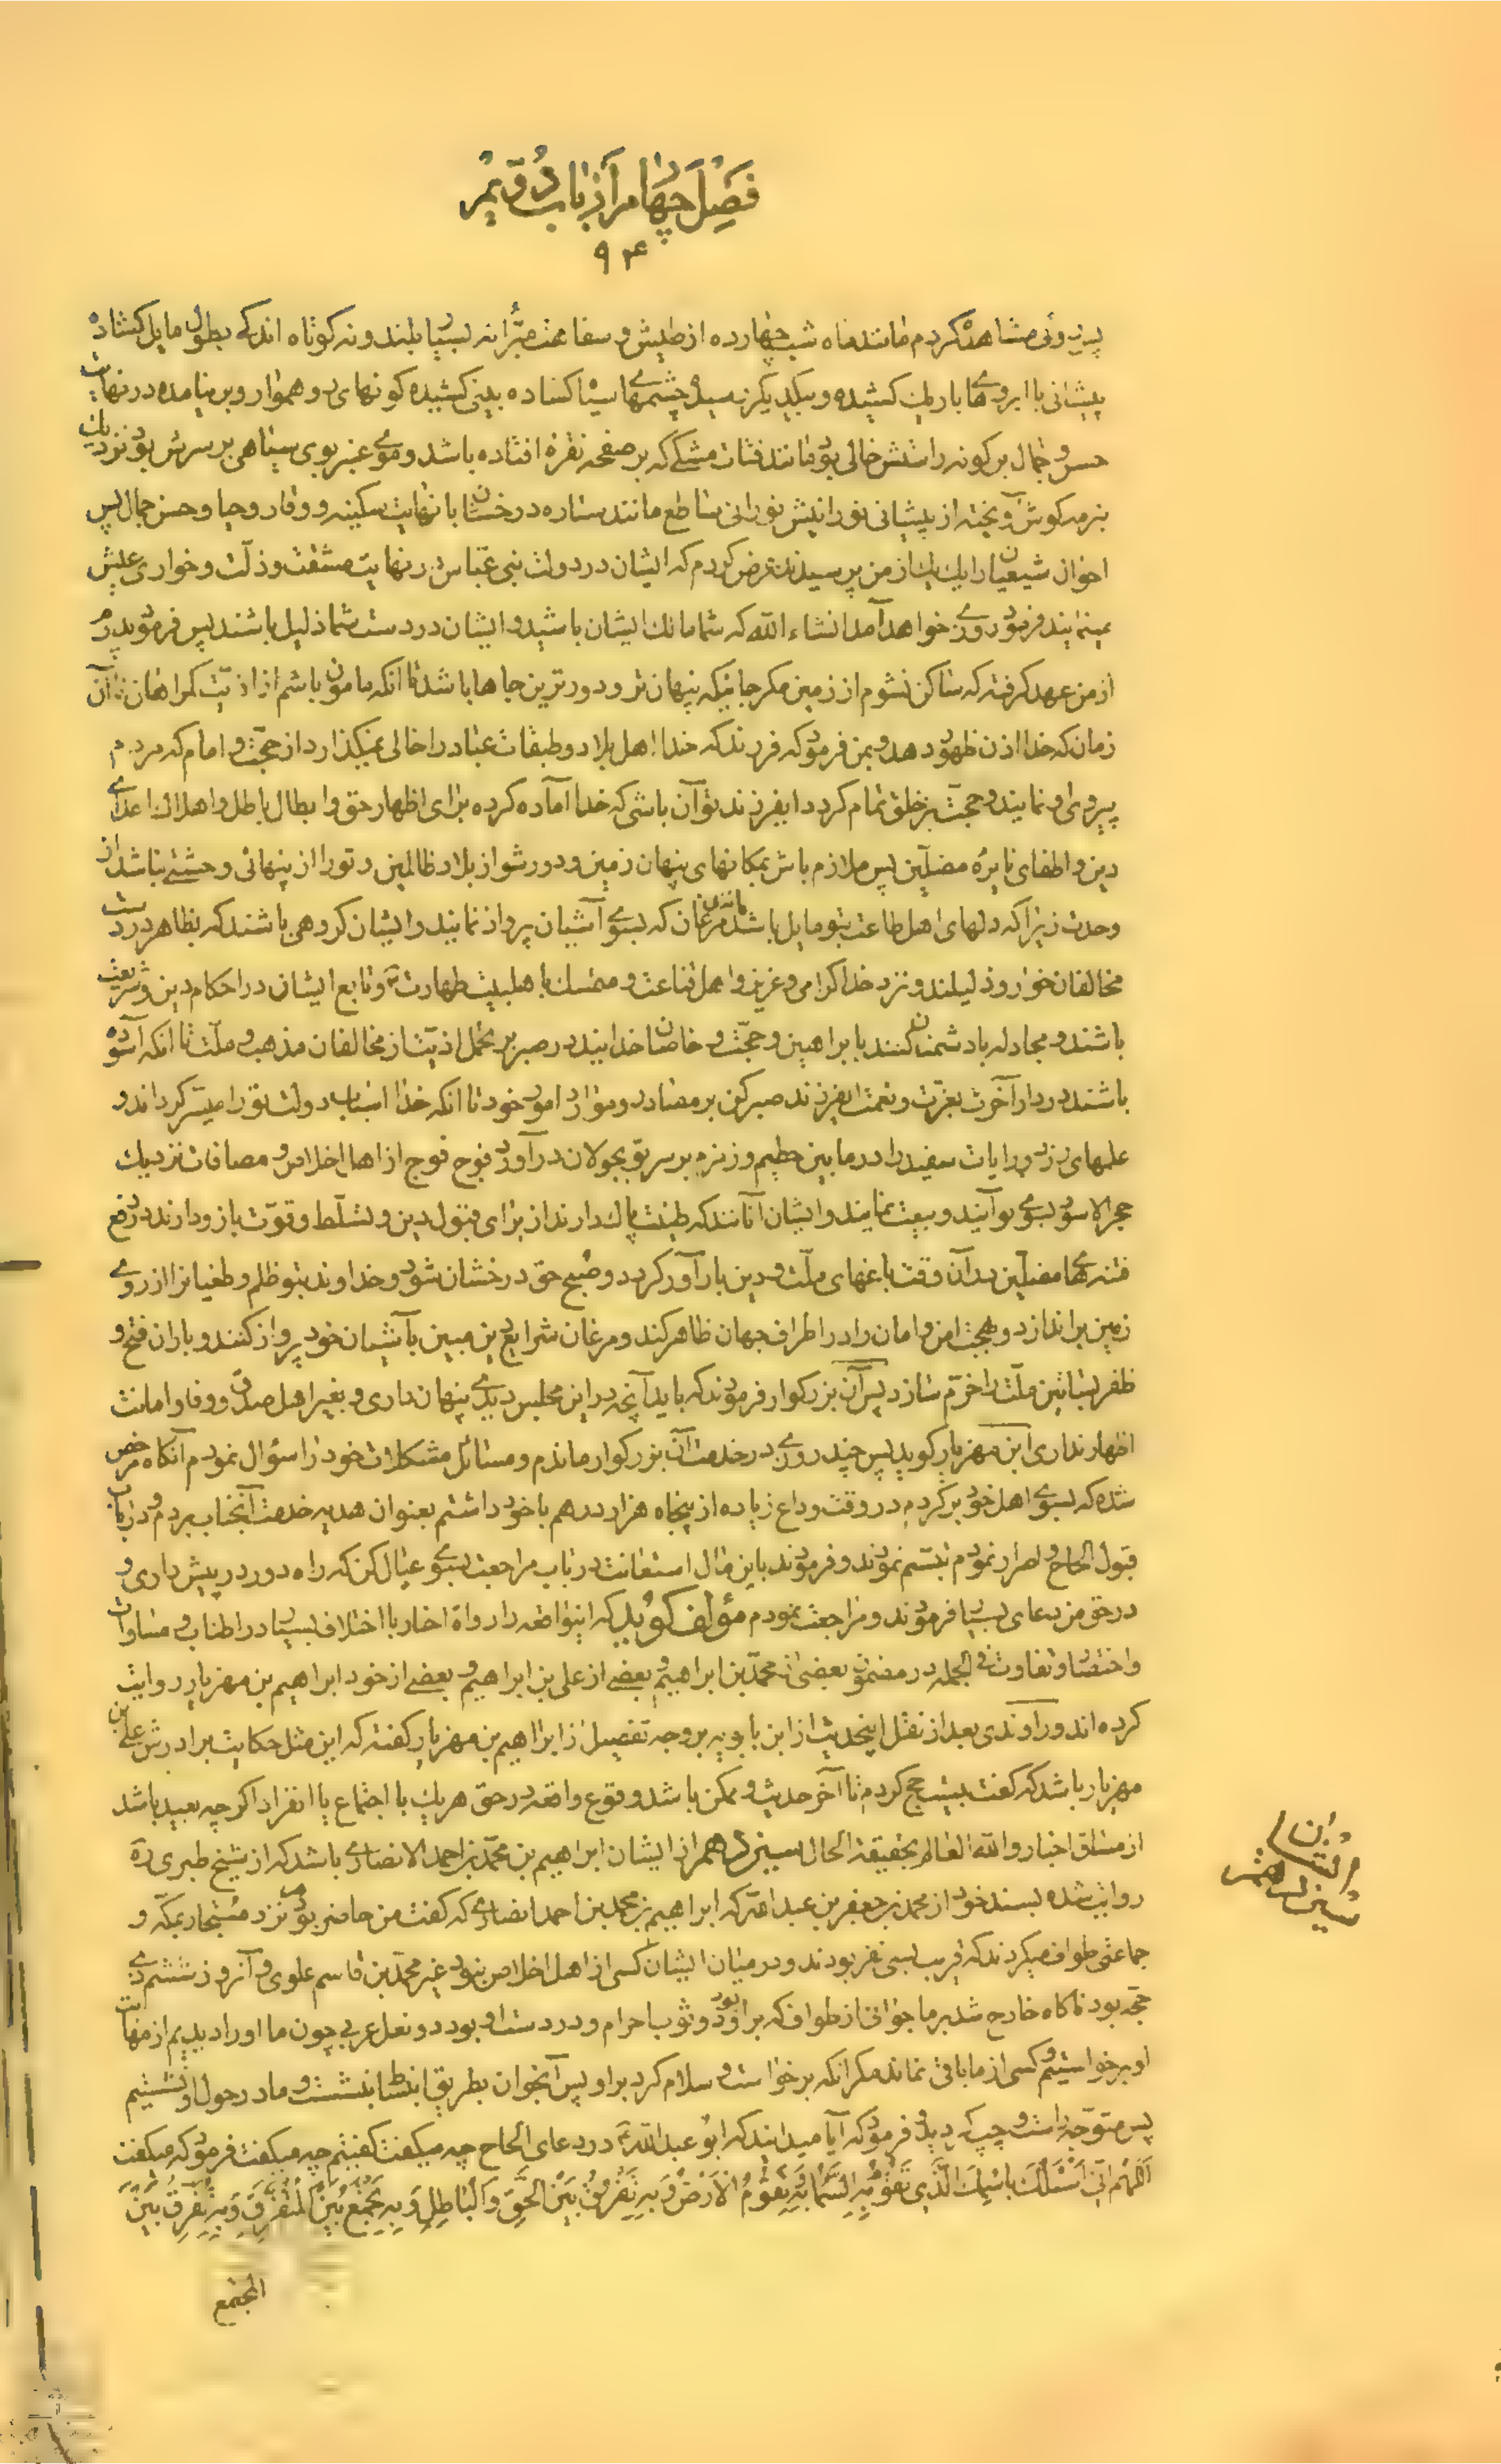 فصل چهارم از باب دویم
۹۴
پریروئی مشاهده کردم مانند ماه شب چهارده از طیش و سفاهت مبرا نه بسیار بلند و نه کوتاه اندکی بطول مایل گشاده
پیشانی با ابروهای باریک کشیده و بیکدیگر پیوسته چشمهای سیاه گشاده بینی کشیده گونهای رو هموار و بر نیامده در نهایت
حسن و جمال بر گونه راستش خالی بود مانند فتات مشکی که بر صفحه نقره افتاده باشد و موی عنبر بوی سیاهی بر سرش بود نزدیک
بنرمه گوش آویخته از پیشانی نورانیش نورانی ساطع مانند ستاره درخشان با نهایت سکینه و وقار و حیا و حسن جمال پس
احوال شیعیان را یک یک از من پرسیدند عرض کردم که ایشان در دولت بنی عباس در نهایت مشقت و ذلت و خواری عیش
مینمایند فرمود روزی خواهد آمد انشاء الله که شما مالک ایشان باشید و ایشان در دست شما ذلیل باشند پس فرمود پدرم
از من عهد گرفته که ساکن نشوم از زمین مگر جائیکه پنهان تر و دورترین جاها باشد تا آنکه مامون باشم از اذیت گمراهان تا آن
زمان که خدا اذن ظهور دهد و بمن فرمود که فرزند که خدا اهل بلاد و طبقات عباد را خالی نمیگذارد از حجت و امام که مردم
پیروی او نمایند و حجت بر خلق تمام گردد ایفرزند تو آن باشی که خدا آماده کرده برای اظهار حق و ابطال باطل و اهلاک اعدای
دین و اطفای نایره مضلین پس ملازم باش بمکانهای پنهان زمین و دور شو از بلاد ظالمین و تو را از پنهانی وحشتی نباشد از
وحدت زیرا که دلهای اهل طاعت بتو مایل باشد مانند مرغان که بسوی آشیان پرواز نمایند و ایشان گروهی باشند که بظاهر در دست
مخالفان خوار و ذلیلند و نزد خدا گرامی و عزیز و اهل قناعت و متمسک باهلبیت طهارت و تابع ایشان در احکام دین و شریعت
باشند و مجادله با دشمنان کنند با براهین و حجت و خاصان خدایند در صبر بر تحمل اذیت از مخالفان مذهب و ملت تا آنکه آسوده
باشند در دار آخرت بعزت و نعمت ایفرزند صبر کن بر مصادر و موارد امور خود تا آنکه خدا اسباب دولت تو را میسر گرداند و
علمهای زرد و رایات سفید را در ما بین حطیم و زمزم بر سر تو بجولان درآورد فوج فوج از اهل اخلاص و مصافات نزدیک
حجر الاسود بسوی تو آیند و بیعت نمایند و ایشان آنانند که طینت پاک دارند از برای قبول دین و تسلط و قوت بازو دارند در دفع
فتنه های مضلین در آن وقت باغهای ملت و دین بارآور گردد و صبح حق درخشان شود و خداوند بتو ظلم و طغیان را از روی
زمین براندازد و بهجت امن و امان را در اطراف جهان ظاهر کند و مرغان شرایع دین مبین بآشیان خود پرواز کنند و باران فتح و
ظفر بساتین ملت را خرم سازد پس آن بزرگوار فرمودند که باید آنچه در این مجلس دیدی پنهان داری و بغیر اهل صدق و وفا و امانت
اظهار نداری ابن مهزیار گوید پس چند روزی در خدمت آن بزرگوار ماندم و مسائل مشکلات خود را سؤال نمودم آنگاه مرخص
شده که بسوی اهل خود برگردم در وقت وداع زیاده از پنجاه هزار درهم با خود داشتم بعنوان هدیه خدمت آنجناب بردم و در باب
قبول الحاح و اصرار نمودم تبسم نمودند و فرمودند باین مال استعانت در باب مراجعت بسوی عیال کن که راه دور در پیش داری و
در حق من دعای بسیار فرمودند و مراجعت نمودم مؤلف گوید که اینواقعه را رواة اخبار با اختلاف بسیار در اطناب و مساوات
و اختصار و تفاوت فی الجمله در مضمون بعضی از محمد بن ابراهیم و بعضی از علی بن ابراهیم و بعضی از خود ابراهیم بن مهزیار روایت
کرده اند و راوندی بعد از نقل اینحدیث از ابن بابویه بر وجه تفصیل از ابراهیم بن مهزیار گفته که این مثل حکایت برادرش علی بن
مهزیار باشد که گفت بیست حج کردم تا آخر حدیث و ممکن باشد وقوع واقعه در حق هر یک با اجتماع یا انفراد اگر چه بعید باشد
از مساق اخبار و الله العالم بحقیقة الحال سیزدهم از ایشان ابراهیم بن محمد بن احمد الانصاری باشد که از شیخ طبری ره
روایت شده بسند خود از محمد بن جعفر بن عبد الله که ابراهیم بن محمد بن احمد انصاری که گفت من حاضر بودم نزد مستجار بمکه و
جماعتی طواف میکردند که قریب بسی نفر بودند و در میان ایشان کسی از اهل اخلاص نبود غیر محمد بن قاسم علوی و آنروز ششم ذی
حجه بود ناگاه خارج شد بر ما جوانی از طواف که بر او بود دو ثوب احرام و در دست او بود دو نعل عربی چون ما او را دیدیم از مهابت
او برخواستیم و کسی از ما باقی نماند مگر آنکه برخواست و سلام کرد بر او پس آنجوان بطریق انبساط بنشست و ما در حول او نشستیم
پس متوجه راست و چپ گردید و فرمود که آیا میدانید که ابو عبد الله ع در دعای الحاح چه میگفت گفتیم چه میگفت فرمود که میگفت
اَللّهُمَّ اِنّی اَسْئَلُکَ بِاسْمِکَ الَّذی تَقُومُ بِهِ السَّماءُ وَ بِهِ تَقُومُ الْاَرْضُ وَ بِهِ تُفَرِّقُ بَیْنَ الْحَقِّ وَ الْباطِلِ وَ بِهِ تَجْمَعُ بَیْنَ الْمُتَفَرِّقِ وَ بِهِ تُفَرِّقُ بَیْنَ
المجتمع
سیزدهم